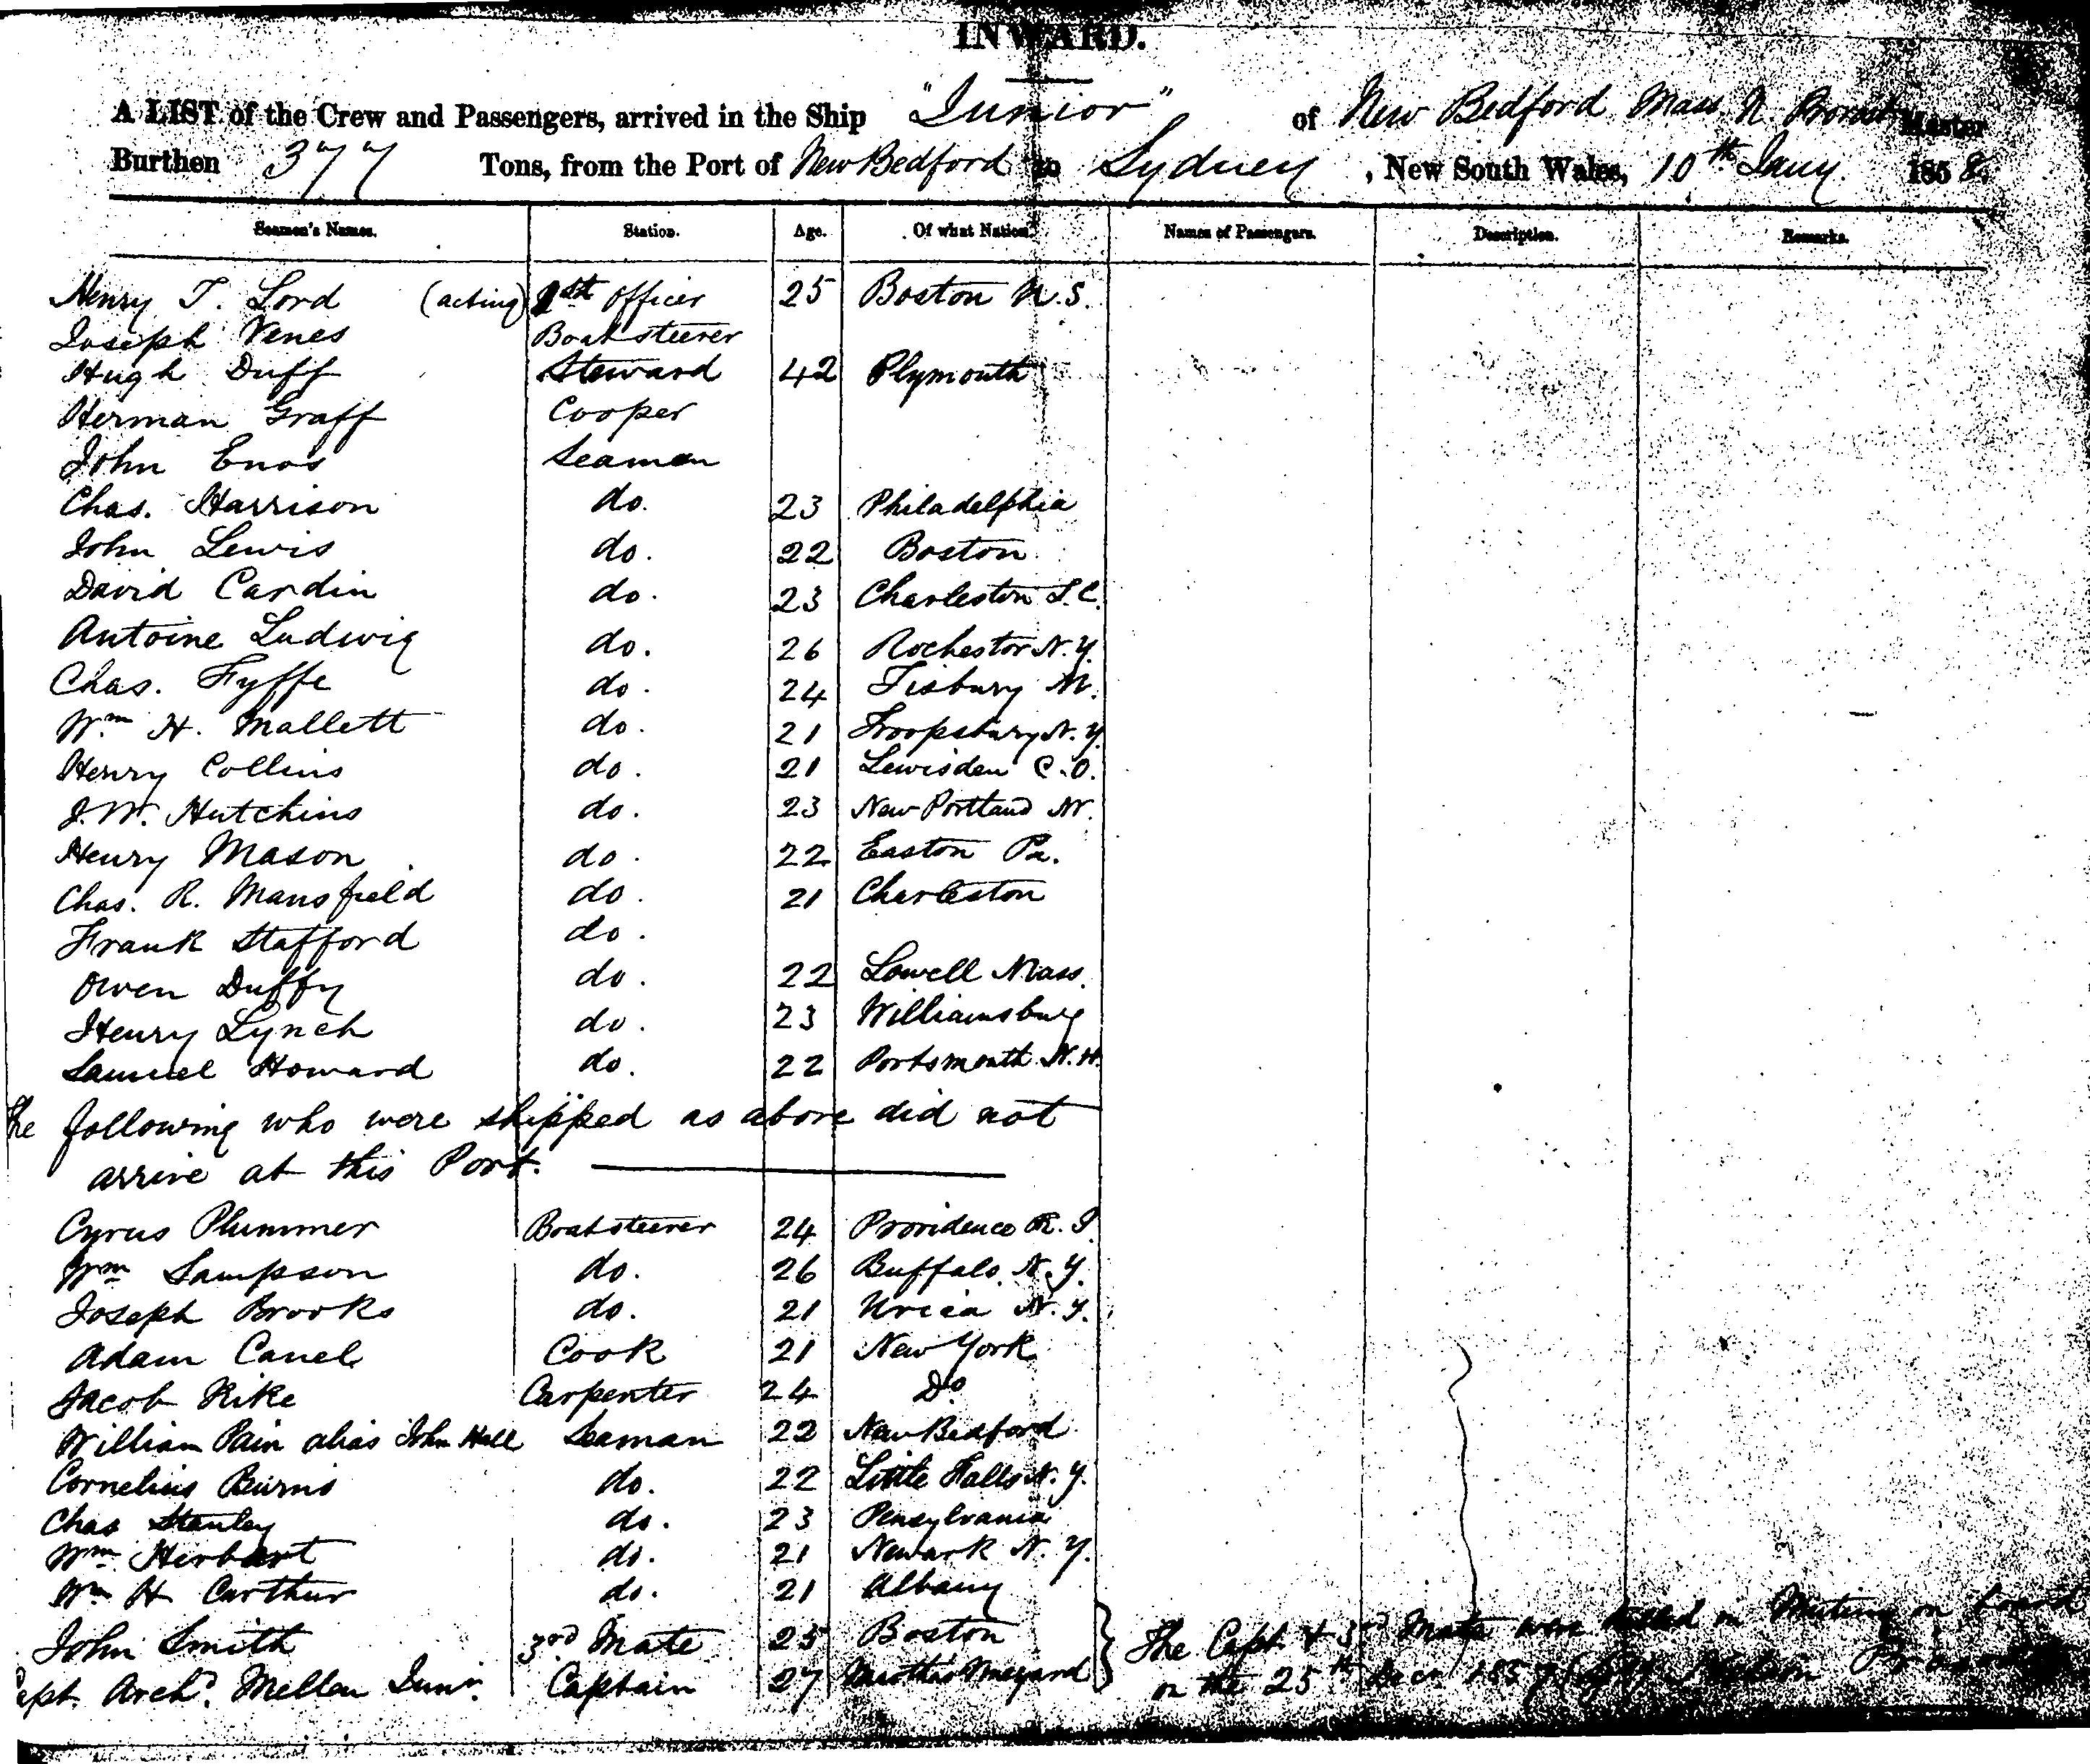 INWARD.
A LIST of the Crew and Passengers, arrived in the Ship "Junior" of New Bedford Mass N. Provost Master
Burthen 377 Tons, from the Port of New Bedford to Sydney, New South Wales, 10th Jany. 1858.
Seamen's Names. Station. Age. Of what Nation. Names of Passengers. Description. Remarks.
Henry T. Lord (acting) 1st Officer 25 Boston U.S.
Joseph Venes Boatsteerer
Hugh Duff Steward 42 Plymouth
Herman Graff Cooper
John Enos Seaman
Chas. Harrison do. 23 Philadelphia
John Lewis do. 22 Boston
David Cardin do. 23 Charleston S.C.
Antoine Ludwig do. 26 Rochestor N.Y.
Chas. Fyffe do. 24 Tisbury M.
Wm H. Mallett do. 21 Troopsbury N.Y.
Henry Collins do. 21 Lewisden C.O.
J.W. Hutchins do. 23 New Portland
Henry Mason do. 22 Easton Pa.
Chas. R. Mansfield do. 21 Charleston
Frank Stafford do.
Owen Duffy do. 22 Lowell Mass.
Henry Lynch do. 23 Williamsburg
Samuel Howard do. 22 Portsmouth N.H.
The following who were shipped as above did not
arrive at this Port.
Cyrus Plummer Boatsteerer 24 Providence R.I.
Wm Sampson do. 26 Buffalo N.Y.
Joseph Brooks do. 21 Urica N.Y.
Adam Canel Cook 21 New York
Jacob Rike Carpenter 24 Do
William Pain alias John Hall Seaman 22 New Bedford
Cornelius Burns do. 22 Little Falls N.Y.
Chas Stanley do. 23 Pensylvania
Wm Herbert do. 21 Newark N.Y.
Wm H Carthur do. 21 Albany
John Smith 3rd Mate 25 Boston
Capt. Archd. Mellen Junr. Captain 27 Marthas Vineyard
The Capt & 3rd Mate were killed in Mutiny on board
on the 25th Decr 1857 Nelson Provost